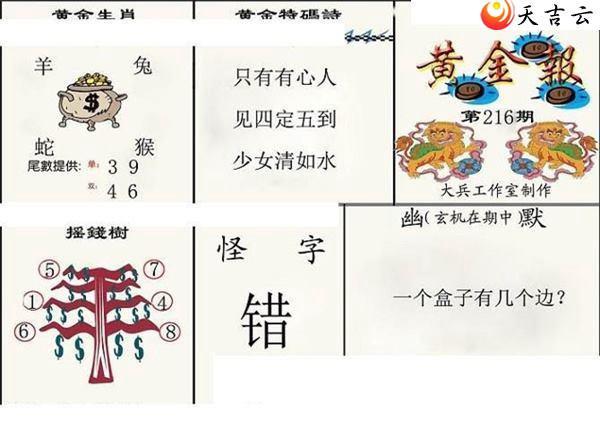 黄金生肖
羊 兔
蛇 猴
尾數提供: 单: 3 9
双: 4 6
黄金特碼詩
只有有心人
见四定五到
少女清如水
天吉云
黄金報
第216期
大兵工作室制作
摇錢樹
⑤ ⑦
① ④
⑥ ⑧
怪 字
错
幽(玄机在期中)默
一个盒子有几个边？